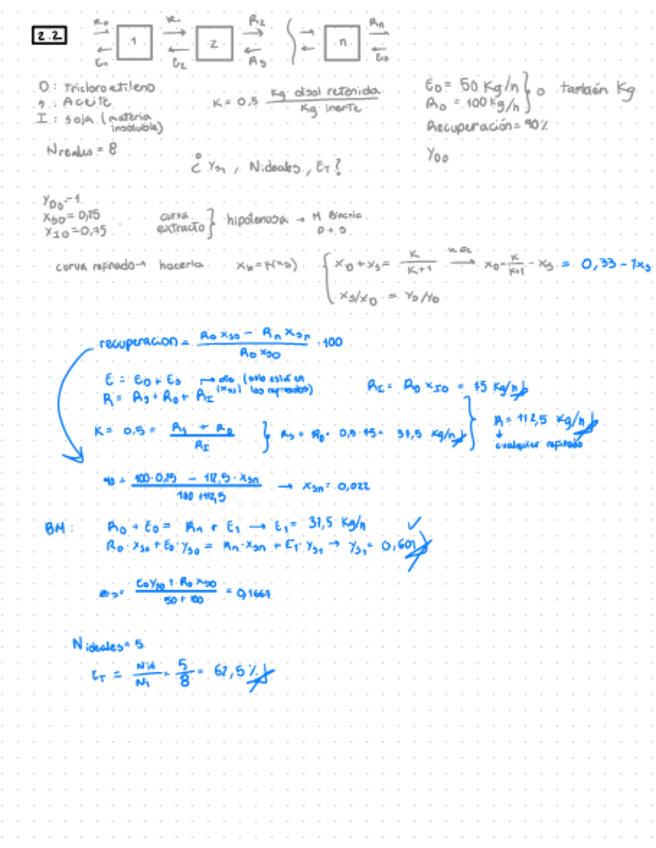 2.2
R₀ → 1 → R₂ → n Rₙ →
E₁ ← E₂ ← R₃ ← E₀
D: tricloroetileno
s: Aceite
I: soja (materia insoluble)
K = 0,5 Kg disol retenida / Kg inerte
E₀ = 50 Kg/h } o también Kg
R₀ = 100 Kg/h
Recuperación = 90%
Nreales = 8
Y_D0
¿ Ys₁, Nideales, E_T?
Y_D0 = 1
X_S0 = 0,25
Y_I0 = 0,75
curva extracto } hipotenusa → M Binaria D + s
curva refinado → hacerla. X_D = f(X_S) { X_D + X_S = K / K+1 → X_D = K / K+1 - X_S = 0,33 - 1X_S
X_S/X_D = Y_S/Y_D
recuperación = R₀ X_S0 - Rₙ X_Sn / R₀ X_S0 · 100
E = E_D + E_S
R = R_S + R_D + R_I
R_I = R₀ X_I0 = 75 Kg/h
K = 0,5 = R_S + R_D / R_I } R_S + R_D = 0,5 · 75 = 37,5 Kg/h } R = 112,5 Kg/h
cualquier refinado
90 = 100·0,25 - 112,5·X_Sn / 100·112,5 → X_Sn = 0,022
BM: R₀ + E₀ = Rₙ + E₁ → E₁ = 37,5 Kg/h ✓
R₀·X_S0 + E₀·Y_S0 = Rₙ·X_Sn + E₁·Y_S1 → Y_S1 = 0,601
= E₀Y_S0 + R₀ X_S0 / 50 + 100 = 0,1667
Nideales = 5
E_T = Nid / N₁ = 5 / 8 = 62,5%